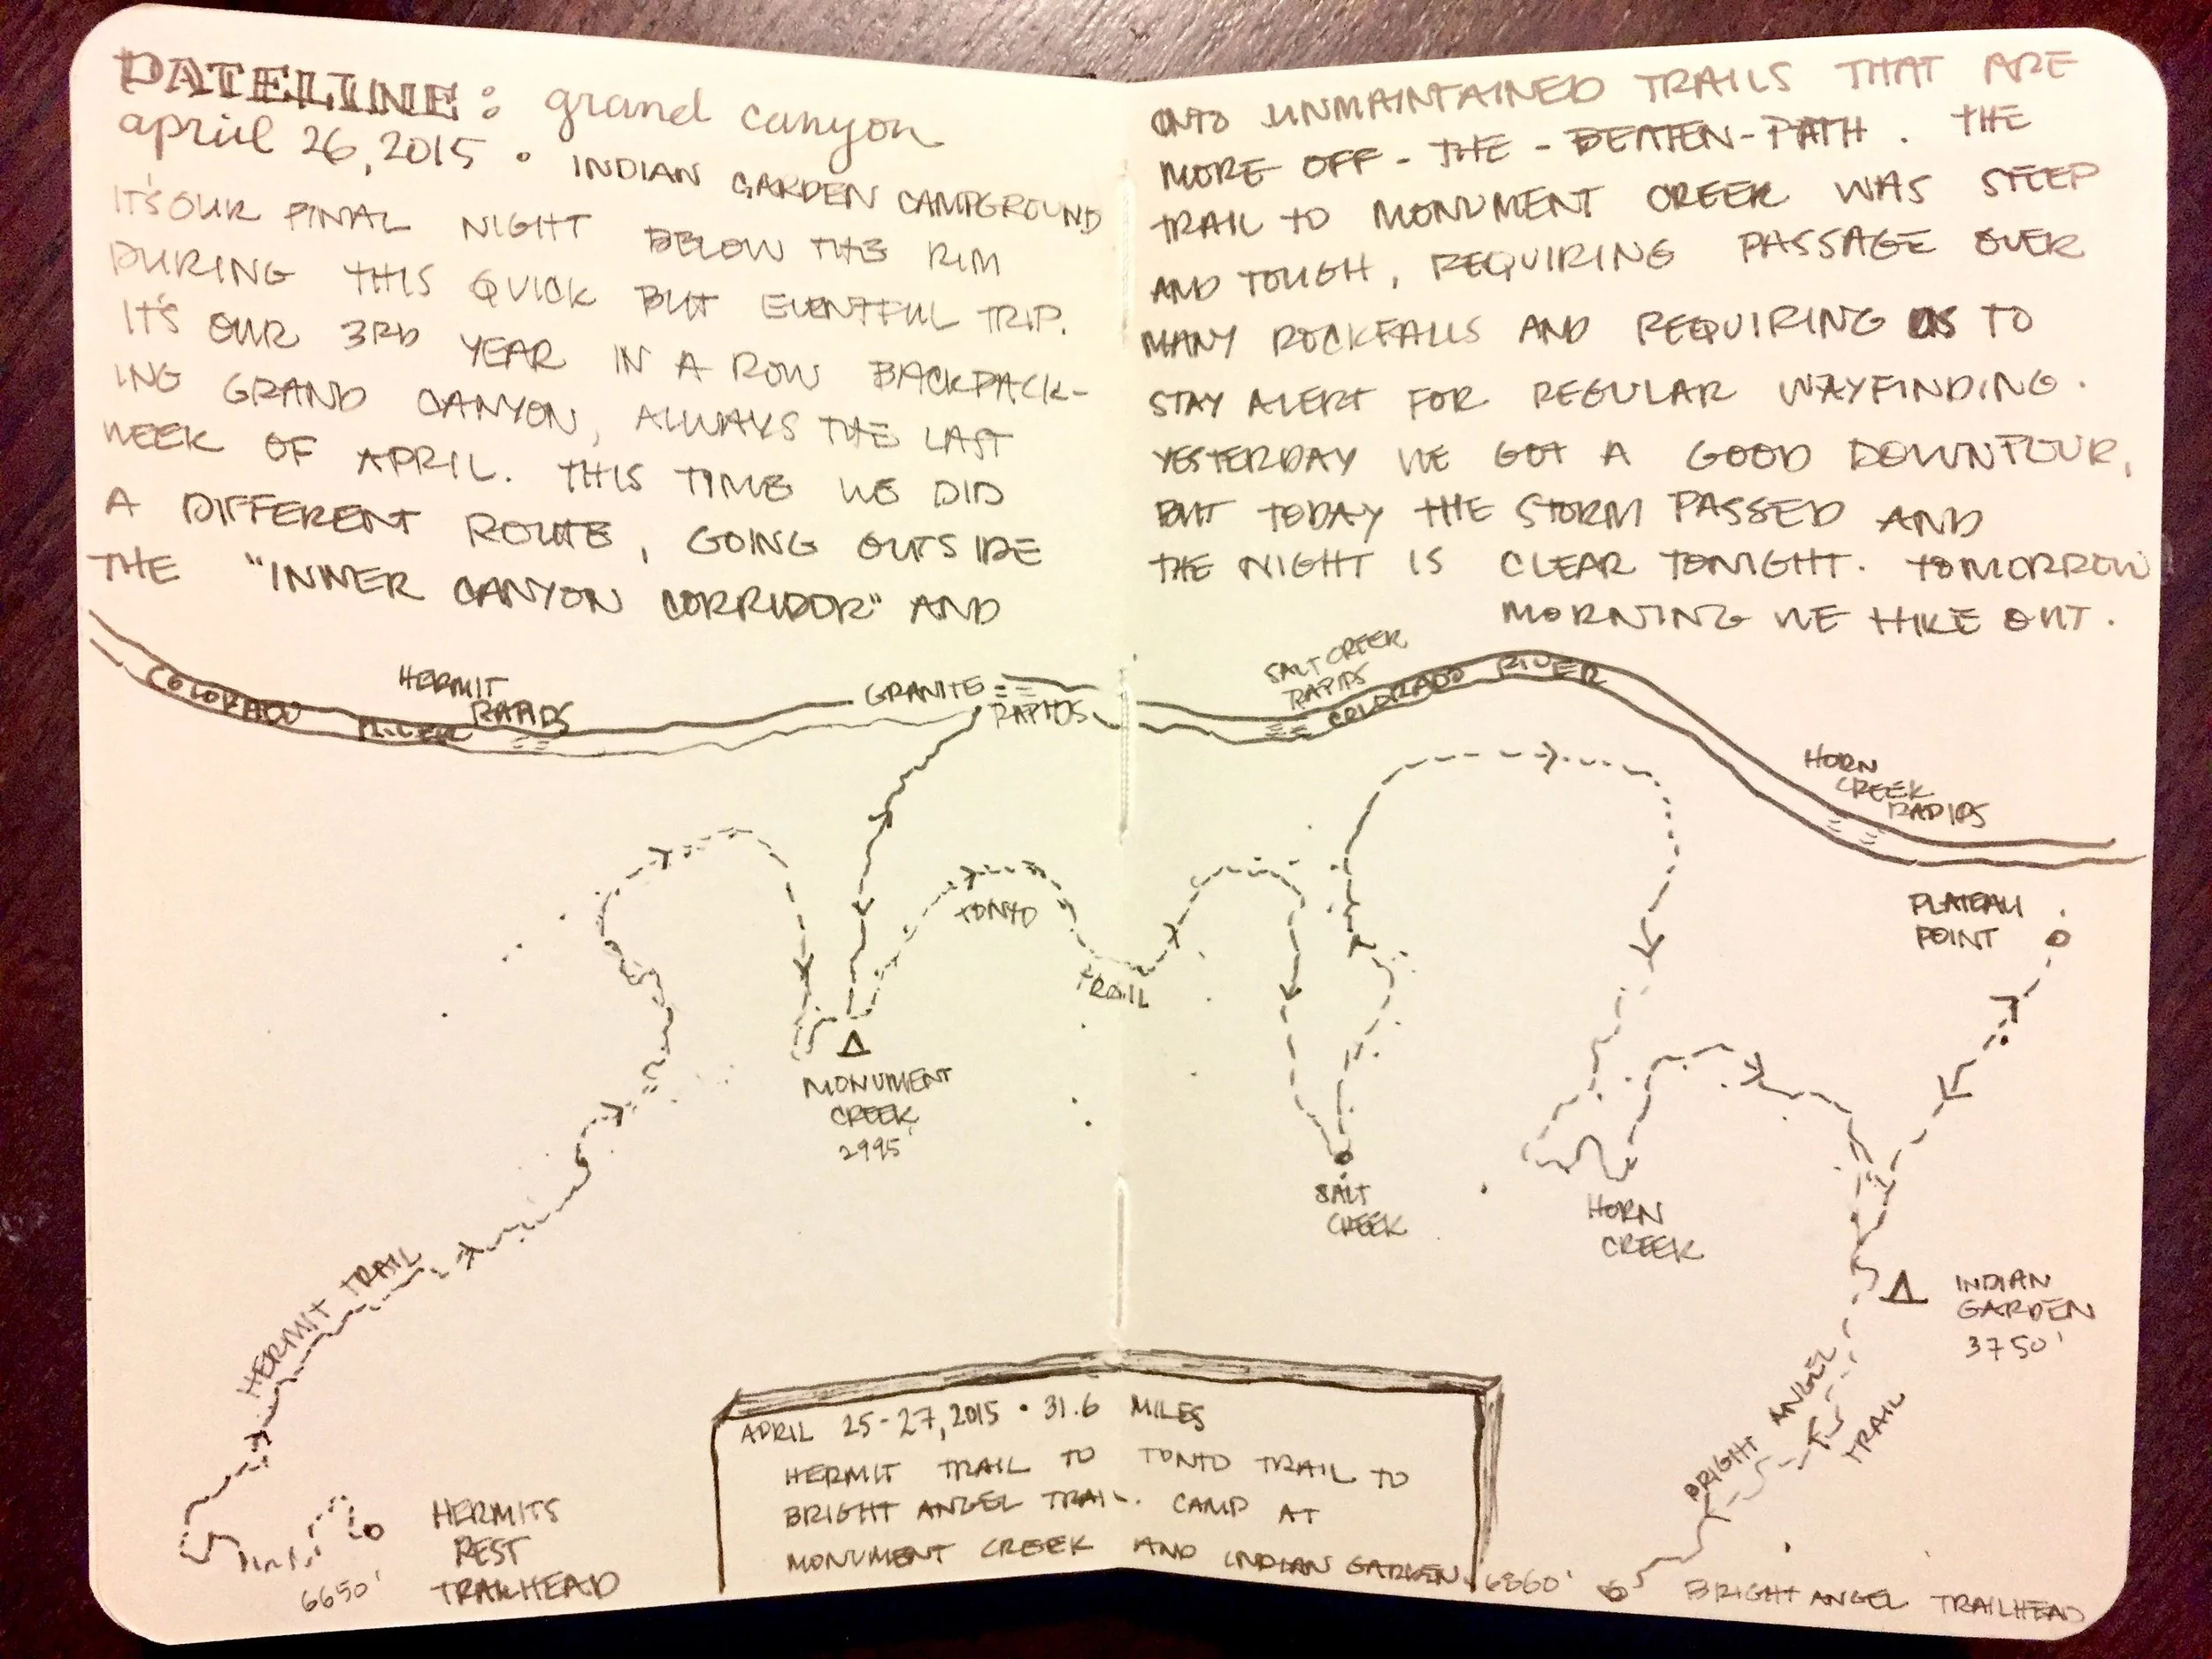 DATELINE: grand canyon
april 26, 2015 • INDIAN GARDEN CAMPGROUND
IT'S OUR FINAL NIGHT BELOW THE RIM
DURING THIS QUICK BUT EVENTFUL TRIP.
IT'S OUR 3RD YEAR IN A ROW BACKPACK-
ING GRAND CANYON, ALWAYS THE LAST
WEEK OF APRIL. THIS TIME WE DID
A DIFFERENT ROUTE, GOING OUTSIDE
THE "INNER CANYON CORRIDOR" AND
ONTO UNMAINTAINED TRAILS THAT ARE
MORE OFF-THE-BEATEN-PATH. THE
TRAIL TO MONUMENT CREEK WAS STEEP
AND TOUGH, REQUIRING PASSAGE OVER
MANY ROCKFALLS AND REQUIRING US TO
STAY ALERT FOR REGULAR WAYFINDING.
YESTERDAY WE GOT A GOOD DOWNPOUR,
BUT TODAY THE STORM PASSED AND
THE NIGHT IS CLEAR TONIGHT. TOMORROW
MORNING WE HIKE OUT.
COLORADO RIVER
HERMIT
RAPIDS
GRANITE
RAPIDS
SALT CREEK
RAPIDS
COLORADO RIVER
HORN
CREEK
RAPIDS
TONTO
TRAIL
PLATEAU
POINT
MONUMENT
CREEK
2995'
SALT
CREEK
HORN
CREEK
INDIAN
GARDEN
3750'
HERMIT TRAIL
BRIGHT ANGEL
TRAIL
HERMITS
REST
TRAILHEAD
6650'
APRIL 25-27, 2015 • 31.6 MILES
HERMIT TRAIL TO TONTO TRAIL TO
BRIGHT ANGEL TRAIL. CAMP AT
MONUMENT CREEK AND INDIAN GARDEN.
6860'
BRIGHT ANGEL TRAILHEAD